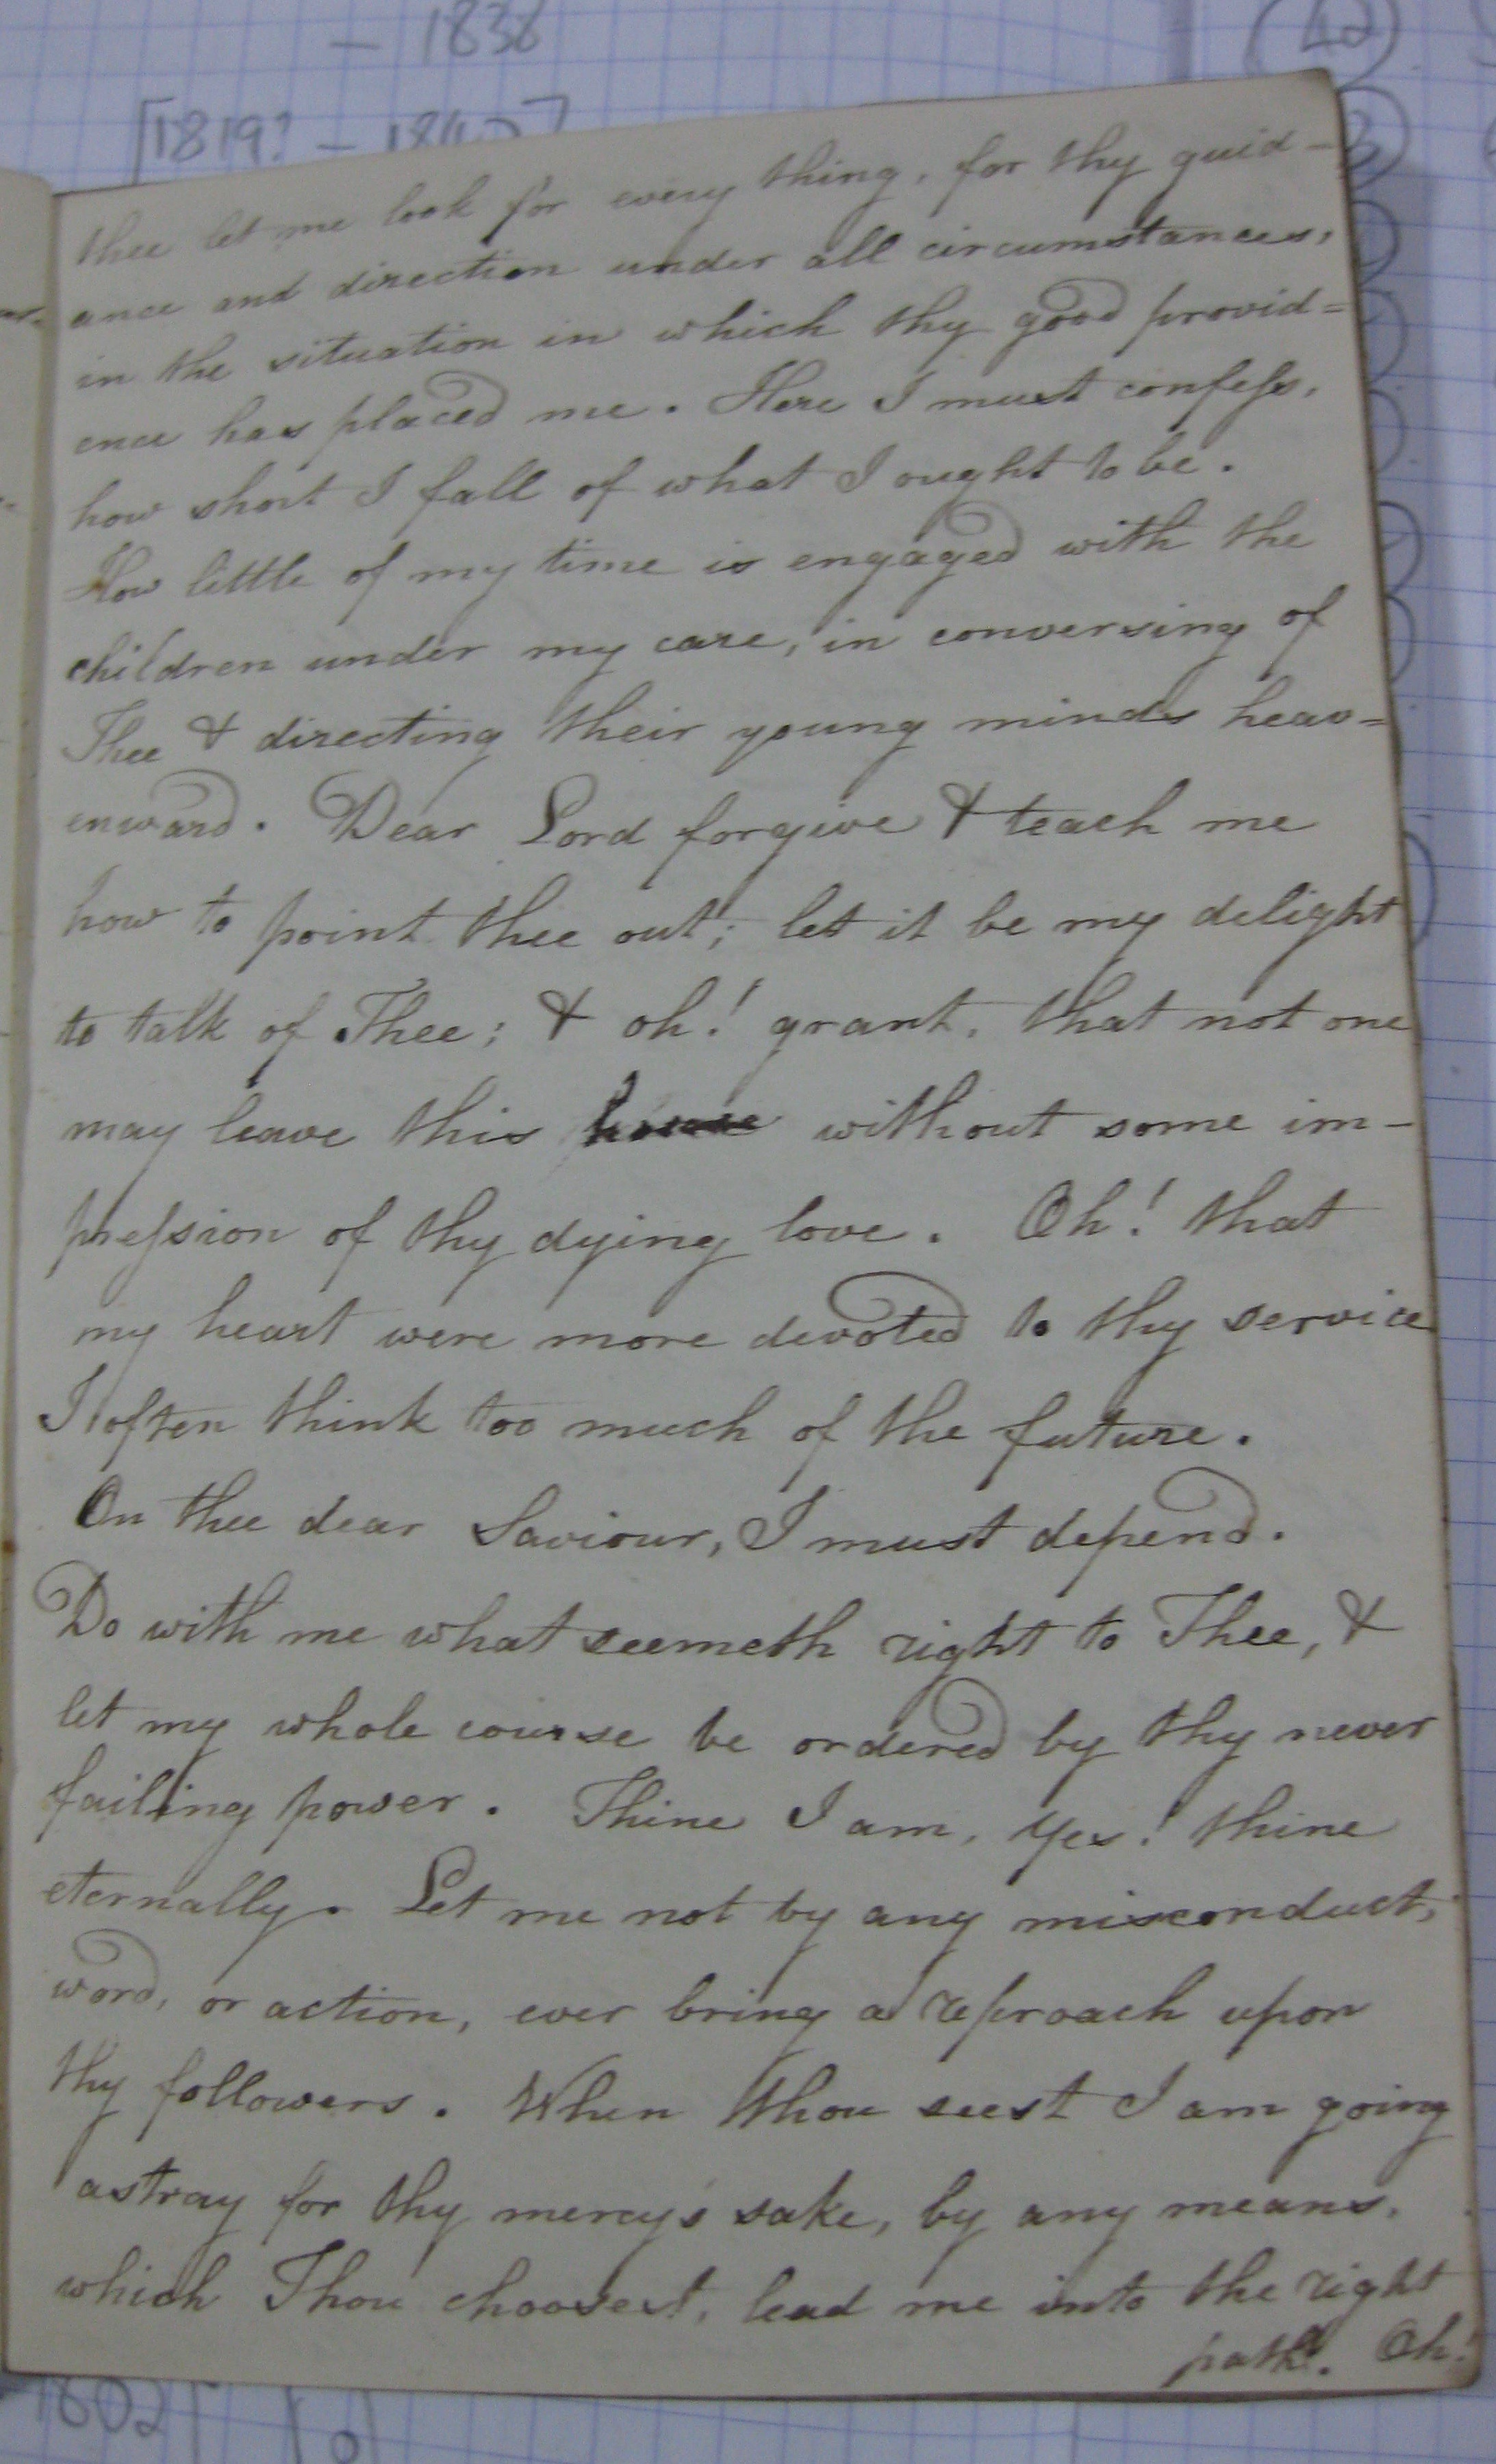 - 1838
[1819? - 1840]
42
thee let me look for every thing, for thy guid-
ance and direction under all circumstances,
in the situation in which thy good provid=
ence has placed me. Here I must confess,
how short I fall of what I ought to be.
How little of my time is engaged with the
children under my care, in conversing of
Thee & directing their young minds heav=
enward. Dear Lord forgive & teach me
how to point thee out; let it be my delight
to talk of Thee; & oh! grant, that not one
may leave this house without some im-
pression of thy dying love. Oh! that
my heart were more devoted to thy service
I often think too much of the future.
On thee dear Saviour, I must depend.
Do with me what seemeth right to Thee, &
let my whole course be ordered by thy never
failing power. Thine I am, Yes! thine
eternally. Let me not by any misconduct,
word, or action, ever bring a reproach upon
thy followers. When thou seest I am going
astray for thy mercy's sake, by any means,
which Thou choosest, lead me into the right
path. Oh!
1802